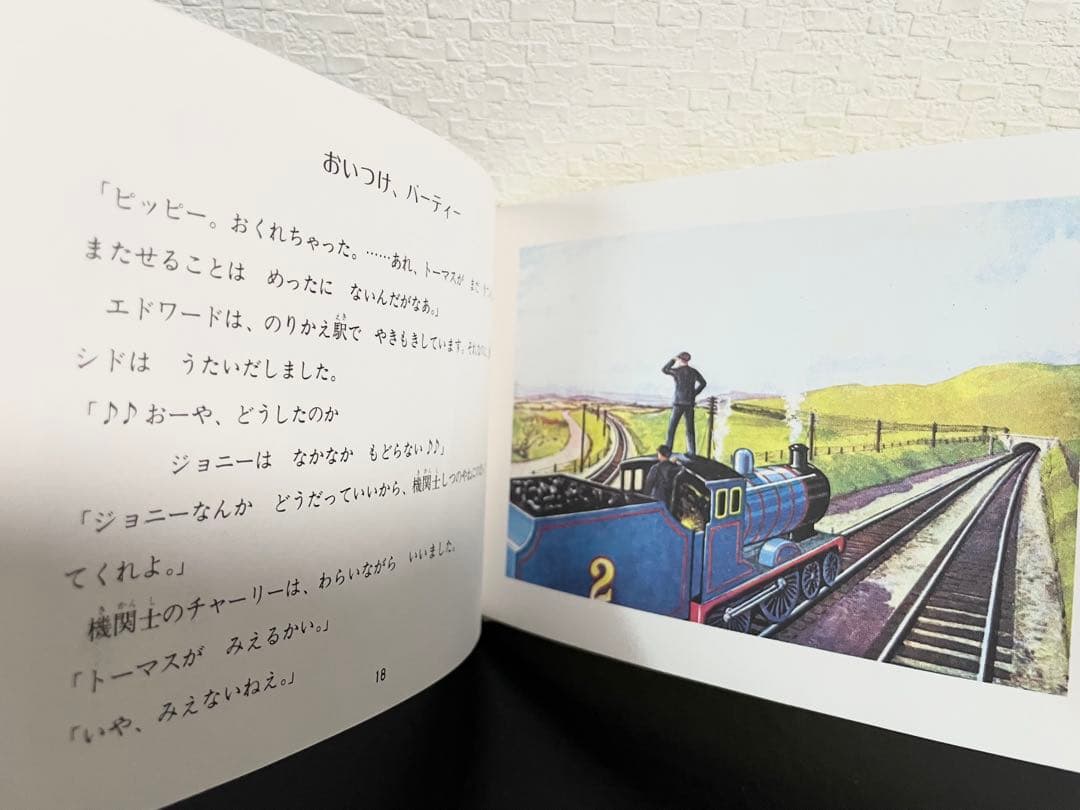 おいつけ、バーティー
「ピッピー。おくれちゃった。……あれ、トーマスが まだ
またせることは めったに ないんだがなあ。」
エドワードは、のりかえ駅で やきもきしています。それなのに
シドは うたいだしました。
「♪♪おーや、どうしたのか
ジョニーは なかなか もどらない♪♪」
「ジョニーなんか どうだっていいから、機関士しつのやねに
てくれよ。」
機関士のチャーリーは、わらいながら いいました。
「トーマスが みえるかい。」
「いや、みえないねえ。」
18
2